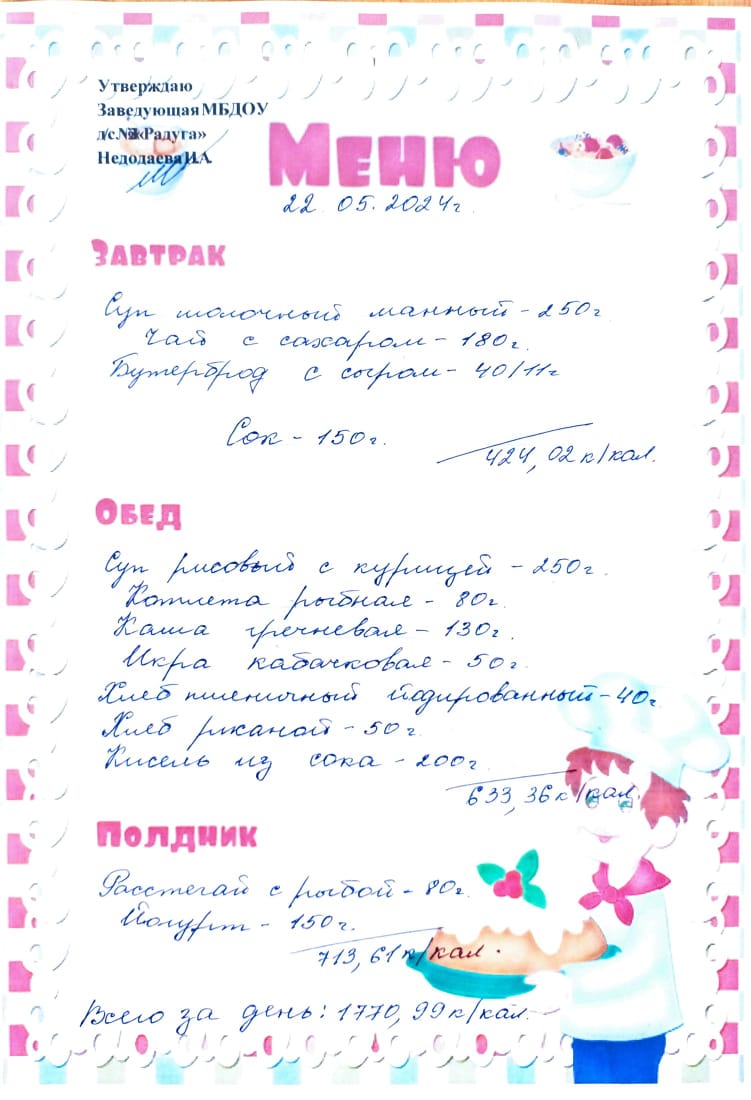 Утверждаю
Заведующая МБДОУ
д/с № «Радуга»
Недодаева И.А.
Меню
22. 05. 2024г.
Завтрак
Суп молочный манный - 250г.
Чай с сахаром - 180г.
Бутерброд с сыром - 40/11г
Сок - 150г.
424, 02 к/кал.
Обед
Суп рисовый с курицей - 250г.
Котлета рыбная - 80г.
Каша гречневая - 130г.
Икра кабачковая - 50г.
Хлеб пшеничный йодированный - 40г.
Хлеб ржаной - 50г.
Кисель из сока - 200г.
633, 36 к/кал.
Полдник
Расстегай с рыбой - 80г.
Йогурт - 150г.
713, 61 к/кал.
Всего за день: 1770, 99 к/кал.